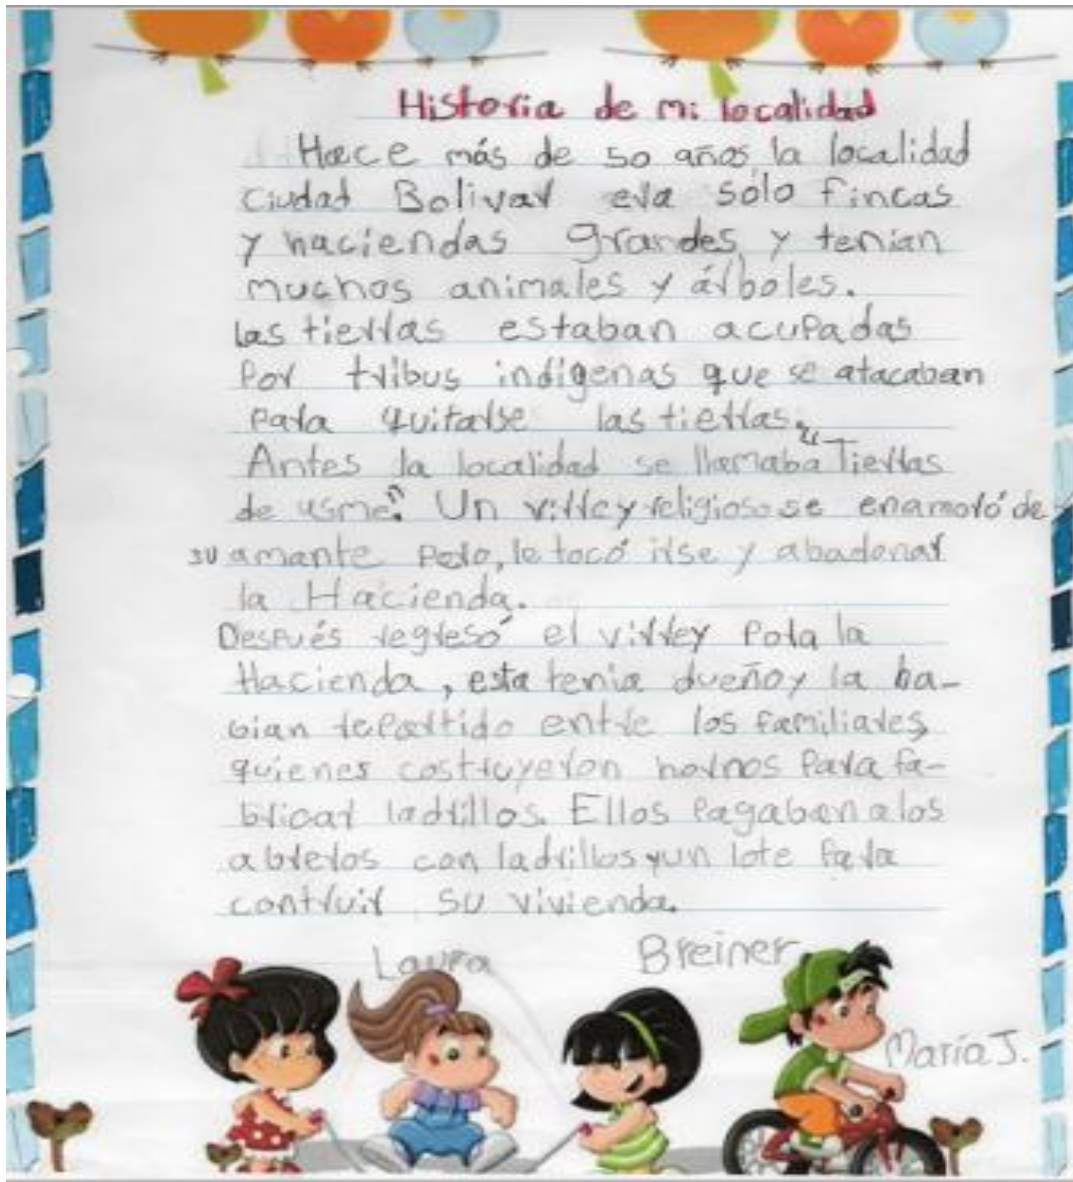 Historia de mi localidad
Hace más de 50 años la localidad
Ciudad Bolivar era sólo fincas
y haciendas grandes y tenian
muchos animales y árboles.
las tierras estaban acupadas
Por tribus indígenas que se atacaban
Para quitarse las tierras.
Antes la localidad se llamaba "Tierras
de usme". Un virrey religioso se enamoró de
su amante Pero, le tocó irse y abadonar
la Hacienda.
Después regresó el virrey Pora la
Hacienda, esta tenia dueño y la ha-
bian repartido entre los familiares,
quienes costruyeron hornos Para fa-
bricar ladrillos. Ellos Pagaban a los
abreros con ladrillos y un lote Para
contruir su vivienda.
Laura
Breiner
María J.